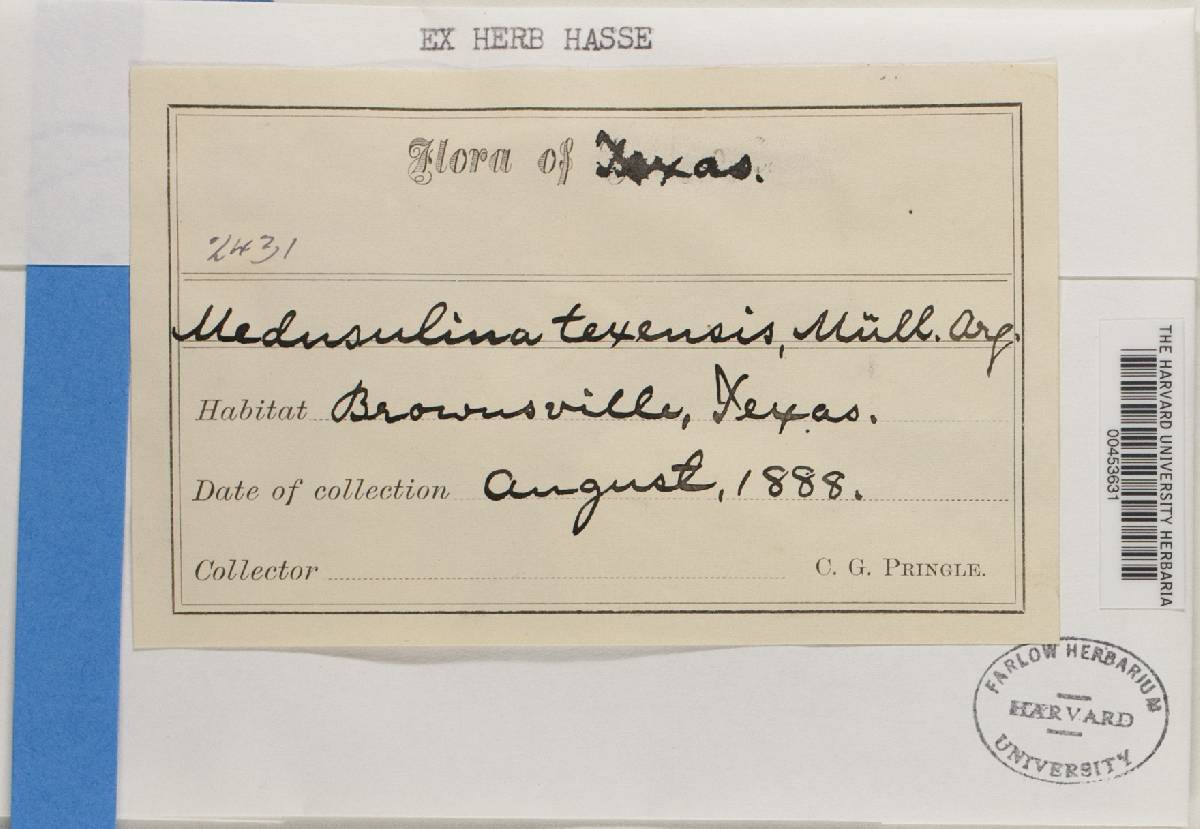 EX HERB HASSE
Flora of Texas.
2431
Medusulina texensis, Müll. Arg.
Habitat Brownsville, Texas.
Date of collection August, 1888.
Collector C. G. PRINGLE.
THE HARVARD UNIVERSITY HERBARIA
00453631
FARLOW HERBARIUM
HARVARD
UNIVERSITY